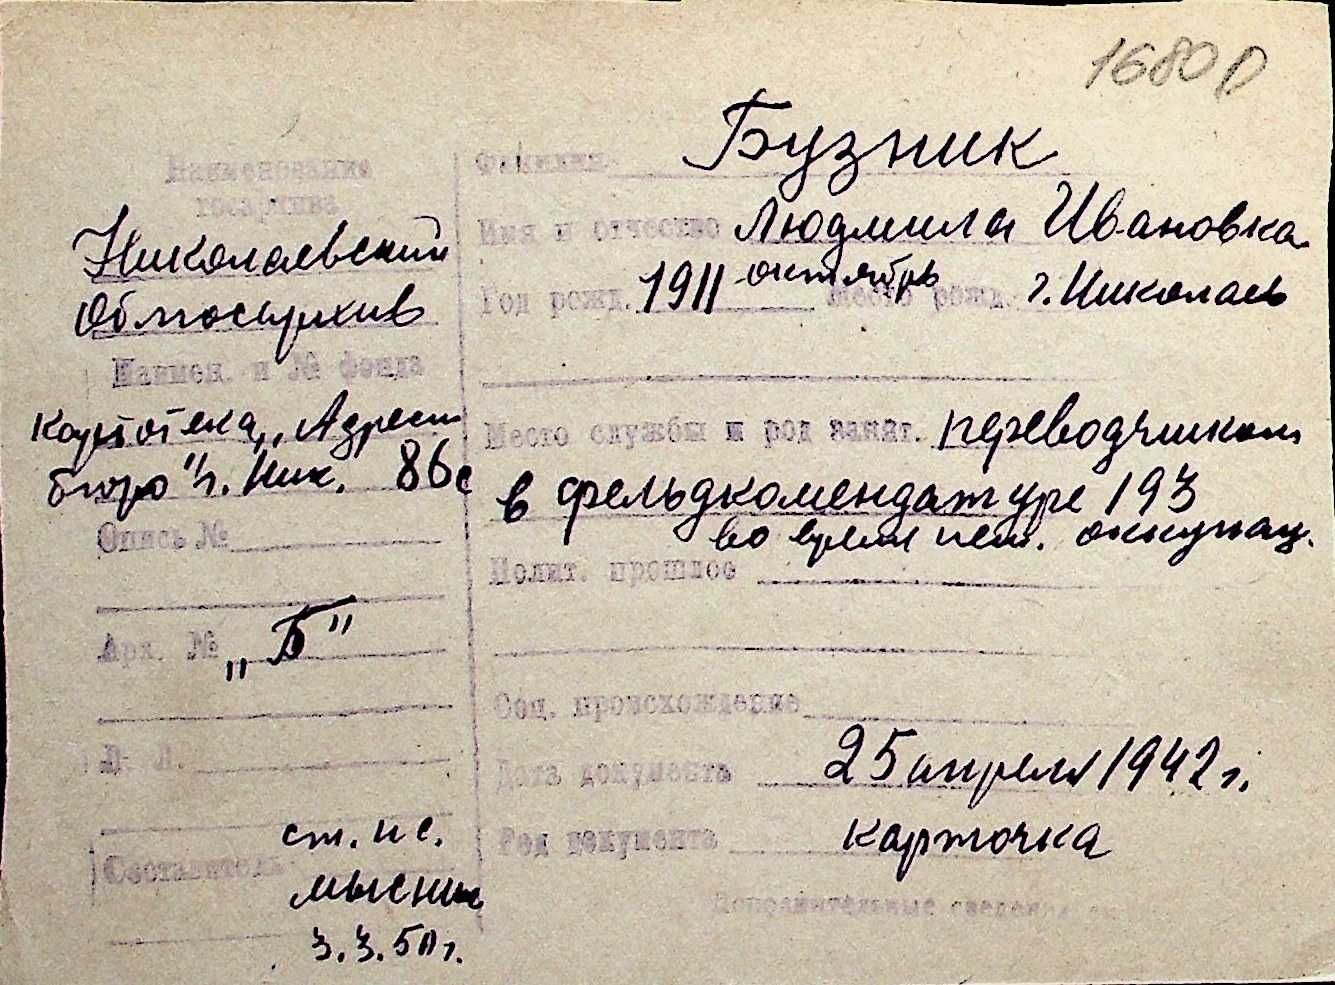 1680
Наименование
госархива
Николаевский
Облгосархив
Наимен. и № фонда
картотека „Адресн
бюро" г. Ник. 86с
Опись №
Арх. № „Б"
Л. Л.
Составитель ст. н с.
3.3.50 г.
Фамилия Бузник
Имя и отчество Людмила Ивановна
Год рожд. 1911 октябрь Место рожд. г. Николаев
Место службы и род занят. переводчиком
в фельдкомендатуре 193
во время нем. оккупац.
Полит. прошлое
Соц. происхождение
Дата документа 25 апреля 1942 г.
Род документа карточка
Дополнительные сведения